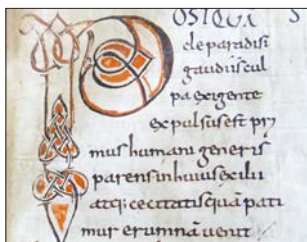 POSTQUĀ
de paradisi
gaudiis cul
pa exigente
expulsus est pri
mus humani generis
parens in huius exilii
atq; cecitatis quā pati
mur erumnā venit